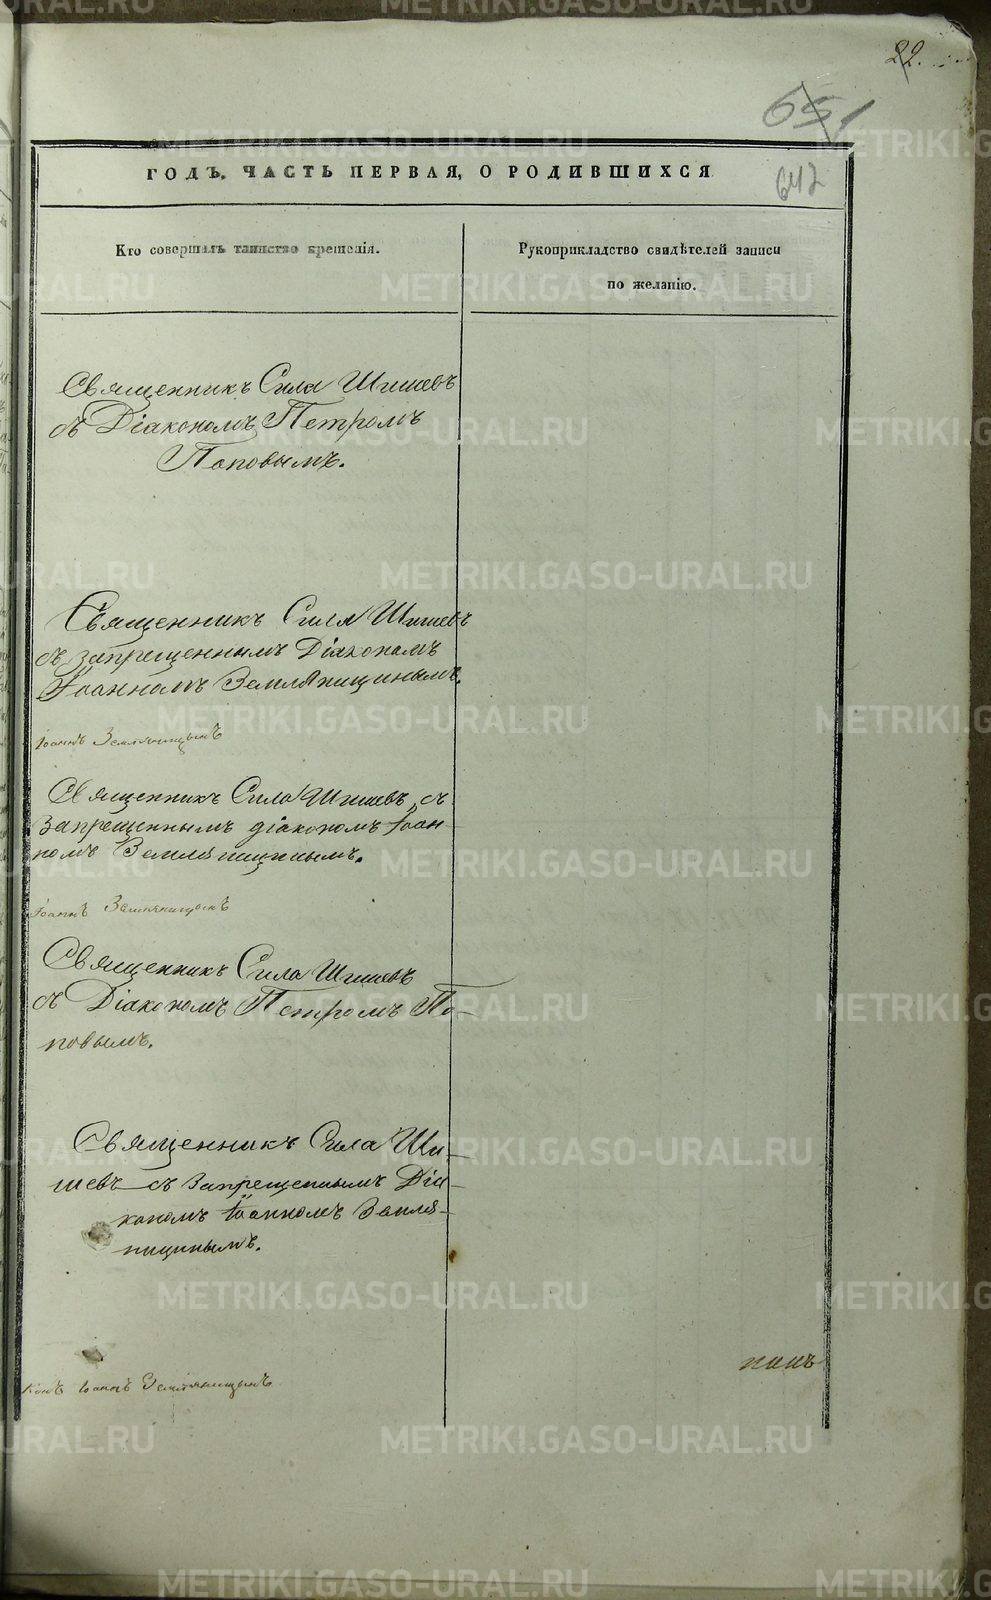 22.
651
642
ГОДЪ. ЧАСТЬ ПЕРВАЯ, О РОДИВШИХСЯ
Кто совершалъ таинство крещенія.
Рукоприкладство свидѣтелей записи
по желанію.
Священникъ Сила Шишевъ
съ Діакономъ Петромъ
Поповымъ.
Священникъ Сила Шишевъ
съ запрещеннымъ Діакономъ
Іоанномъ Земляницинымъ.
Іоаннъ Земляницынъ
Священникъ Сила Шишевъ, съ
Запрещеннымъ діакономъ Іоан-
номъ Земляницинымъ.
Іоаннъ Земляницынъ
Священникъ Сила Шишевъ
съ Діакономъ Петромъ По-
повымъ.
Священникъ Сила Ши-
шевъ съ Запрещеннымъ Діа-
кономъ Іоанномъ Земля-
ницинымъ.
Іоаннъ Земляницынъ
METRIKI.GASO-URAL.RU